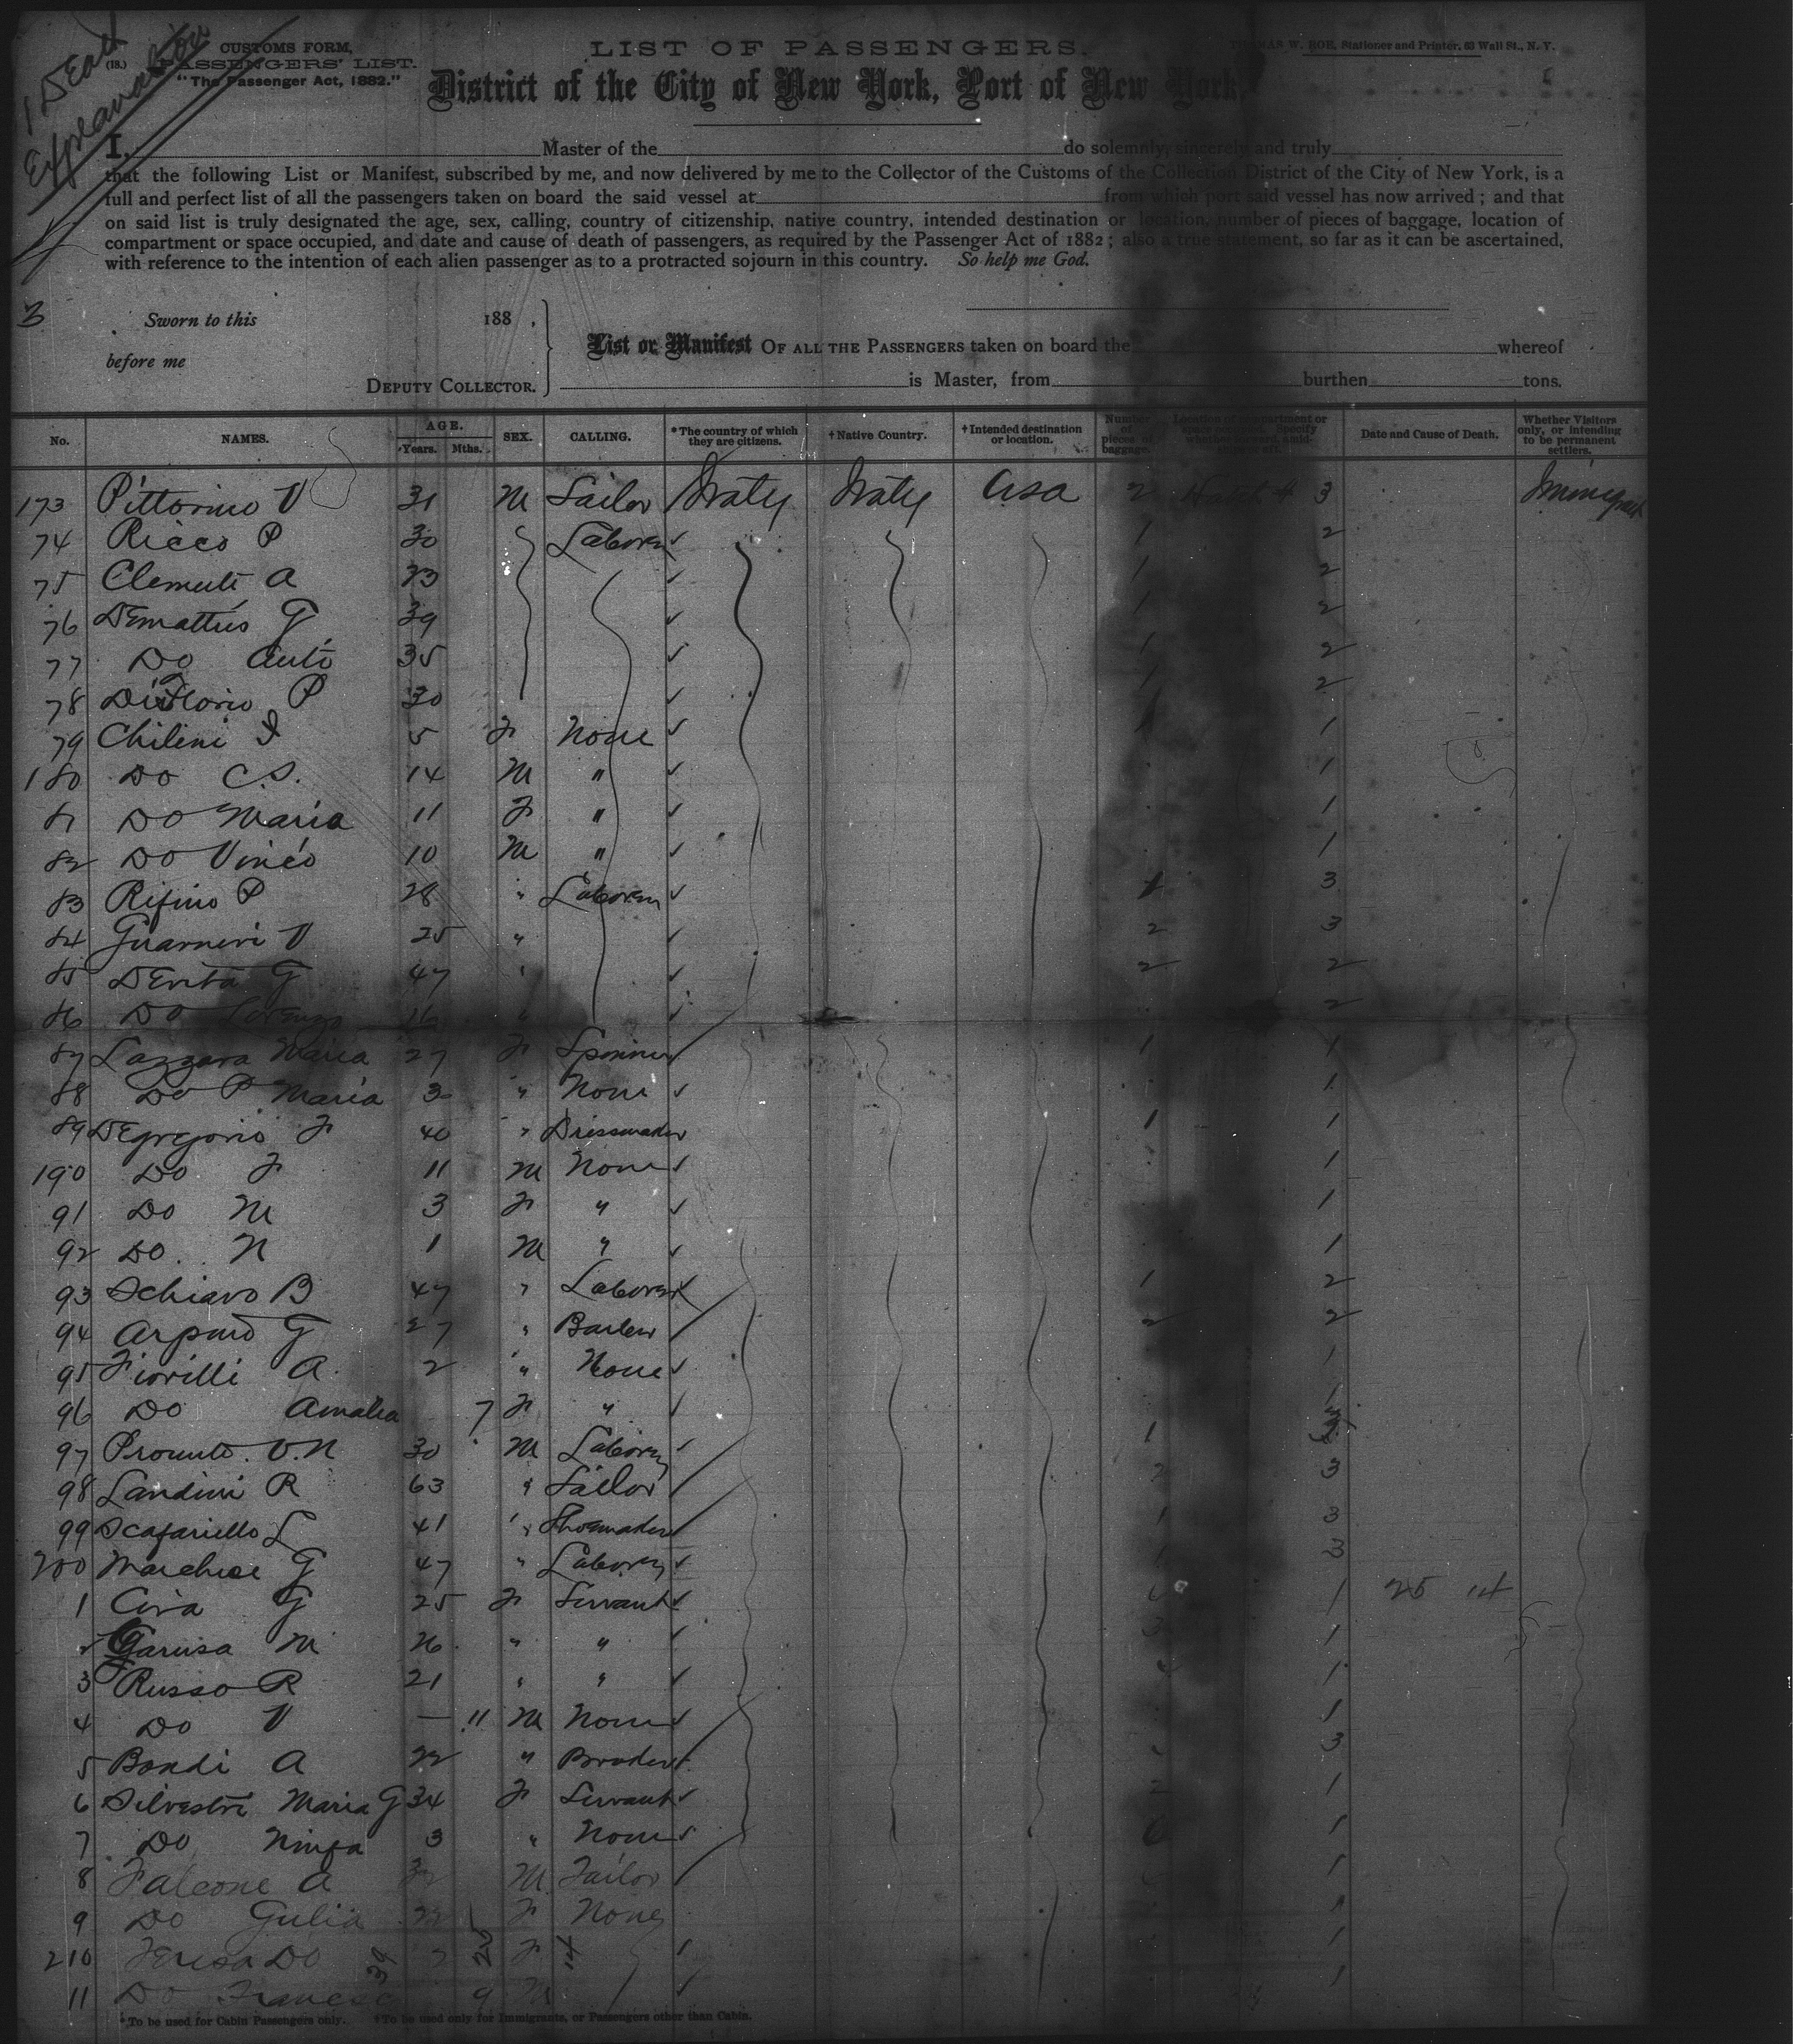 1 Dead
Explanation
CUSTOMS FORM,
(18.) PASSENGERS' LIST.
"The Passenger Act, 1882."
LIST OF PASSENGERS.
THOMAS W. ROE, Stationer and Printer, 63 Wall St., N. Y.
District of the City of New York, Port of New York.
I, Master of the do solemnly, sincerely and truly
that the following List or Manifest, subscribed by me, and now delivered by me to the Collector of the Customs of the Collection District of the City of New York, is a
full and perfect list of all the passengers taken on board the said vessel at from which port said vessel has now arrived; and that
on said list is truly designated the age, sex, calling, country of citizenship, native country, intended destination or location, number of pieces of baggage, location of
compartment or space occupied, and date and cause of death of passengers, as required by the Passenger Act of 1882; also a true statement, so far as it can be ascertained,
with reference to the intention of each alien passenger as to a protracted sojourn in this country. So help me God.
3
Sworn to this 188 ,
before me
DEPUTY COLLECTOR.
List or Manifest OF ALL THE PASSENGERS taken on board the whereof
is Master, from burthen tons.
No. NAMES. AGE. Years. Mths. SEX. CALLING. *The country of which they are citizens. †Native Country. †Intended destination or location. Number of pieces of baggage. Location of compartment or space occupied, Date and Cause of Death. Whether Visitors only, or intending to be permanent settlers.
173 Pittorino V 31 M Tailor Italy Italy Usa 2 Hatch 4 3 Immigrant
74 Ricco P 30 Laborer 1 2
75 Clemente A 23 1 2
76 DEmatteis G 39 1 2
77 Do Anto 35 1 2
78 P 30 1 2
79 Chilini 5 F None 1
180 Do C.S. 14 M " 1
81 Do Maria 11 F " 1
82 Do Vinco 10 M " 1
83 Rifino P 28 " Laborer 1 3
84 Guarneri V 25 " 2 3
85 DEvita G 47 " 2 2
86 Do Lorenzo 16 " 2
87 Lazzara Maria 27 F Spinner 1 1
88 Do P Maria 3 " None 1
89 DEgregorio F 40 " Dressmaker 1 1
190 Do F 11 M None 1
91 Do M 3 F " 1
92 Do N 1 M " 1
93 Schiavo B 47 " Laborer 1 2
94 Arpaio G 27 " Barber 2 2
95 Fiorilli A 2 " None 1
96 Do Amalia 7 F " 1
97 V.N 30 M Laborer 1
98 Landini R 63 " Tailor 2 3
99 Scafariello L 41 " Shoemaker 1 3
200 Marchese G 47 " Laborer 3
1 Cira G 25 F Servant 1 25 14
2 Garusa M 26 " " 1
3 Russo R 21 " " 1
4 Do V — 11 M None 1
5 Bondi A 22 " 3
6 Silvestri Maria G 34 F Servant 2 1
7 Do Ninfa 3 " None 1
8 Falcone A 32 M Tailor 1
9 Do Gulia 22 F None 1
210 Teresa Do 2 F 1
11 Do Francesco 9 M 1
39 25 14
*To be used for Cabin Passengers only. †To be used only for Immigrants, or Passengers other than Cabin.